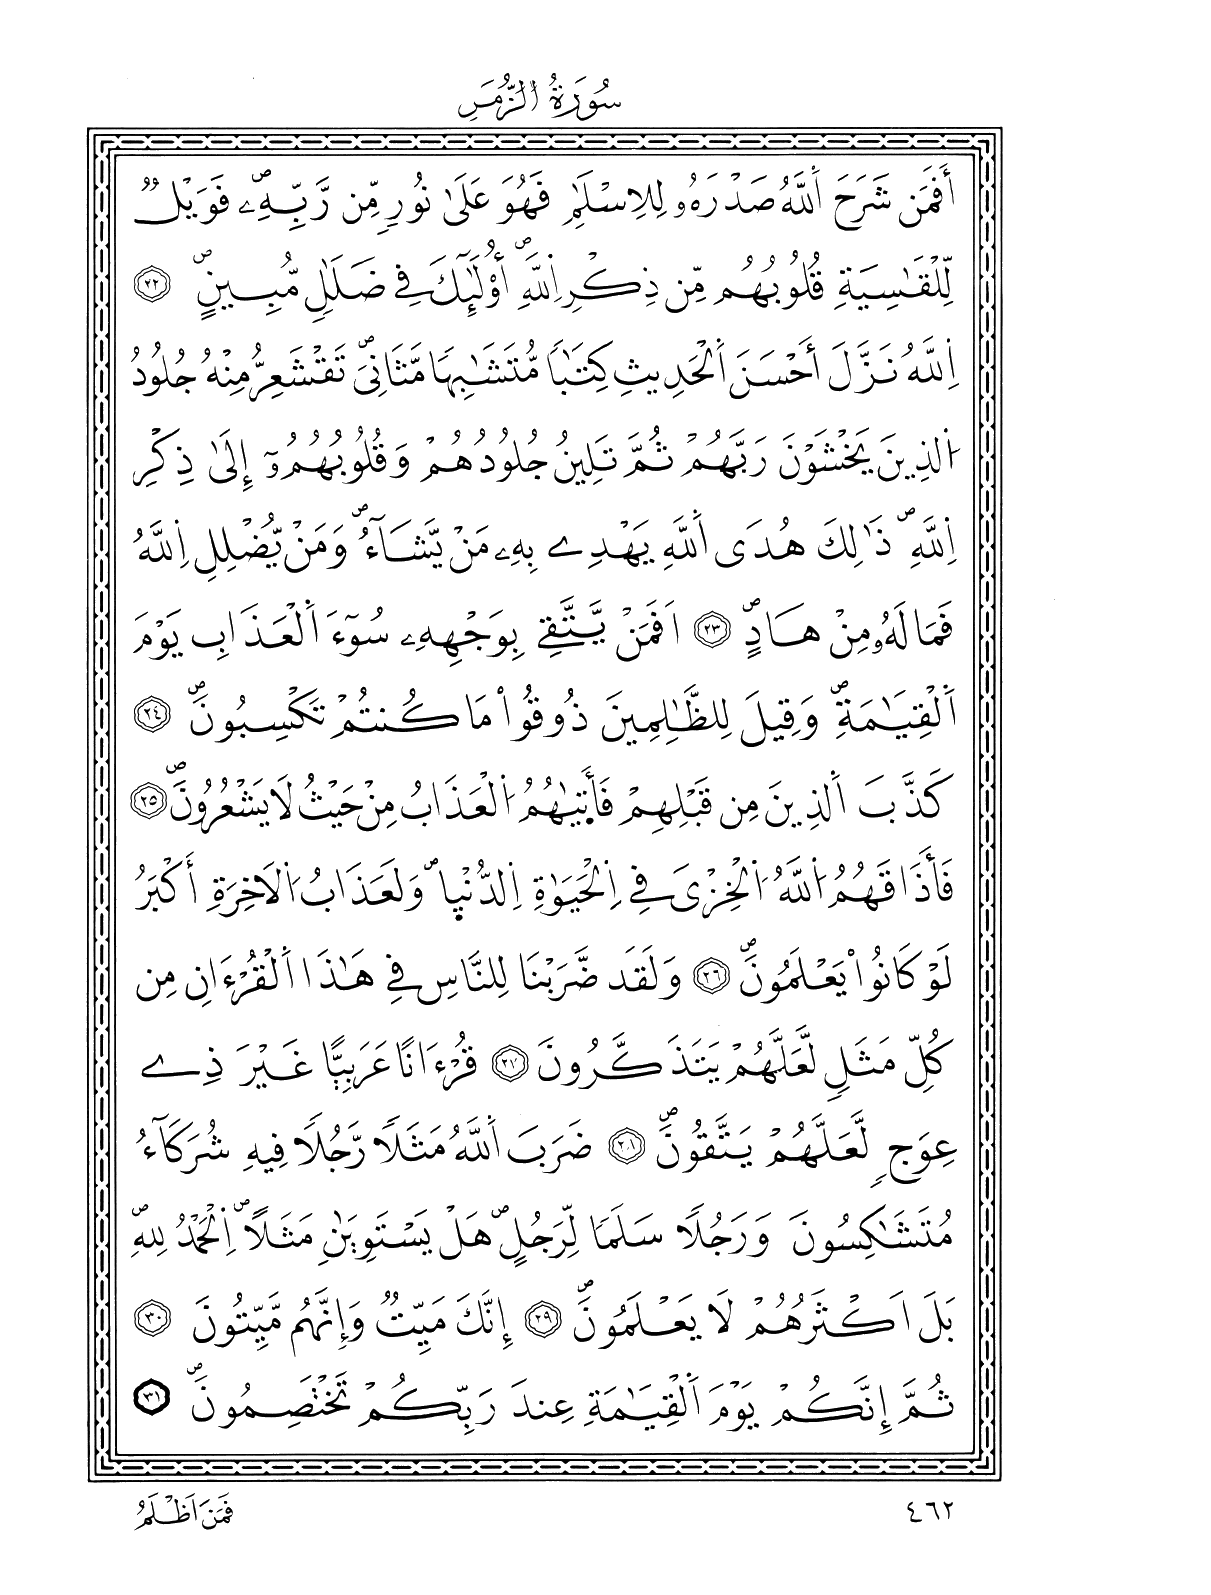 سُورَةُ الزُّمَرِ
أَفَمَن شَرَحَ اَ۬للَّهُ صَدْرَهُۥ لِلِاسْلَٰمِ فَهُوَ عَلَىٰ نُورٖ مِّن رَّبِّهِۦۖ فَوَيْلٞ
لِّلْقَٰسِيَةِ قُلُوبُهُم مِّن ذِكْرِ اِ۬للَّهِۖ أُوْلَٰٓئِكَ فِے ضَلَٰلٖ مُّبِينٍۖ ٢٢
اِ۬للَّهُ نَزَّلَ أَحْسَنَ اَ۬لْحَدِيثِ كِتَٰباٗ مُّتَشَٰبِهاٗ مَّثَانِيَۖ تَقْشَعِرُّ مِنْهُ جُلُودُ
اُ۬لذِينَ يَخْشَوْنَ رَبَّهُمْ ثُمَّ تَلِينُ جُلُودُهُمْ وَقُلُوبُهُمُۥٓ إِلَىٰ ذِكْرِ
اِ۬للَّهِۖ ذَٰلِكَ هُدَى اَ۬للَّهِ يَهْدِے بِهِۦ مَنْ يَّشَآءُۖ وَمَنْ يُّضْلِلِ اِ۬للَّهُ
فَمَا لَهُۥ مِنْ هَادٍۖ ٢٣ اَفَمَنْ يَّتَّقِے بِوَجْهِهِۦ سُوٓءَ اَ۬لْعَذَابِ يَوْمَ
اَ۬لْقِيَٰمَةِۖ وَقِيلَ لِلظَّٰلِمِينَ ذُوقُواْ مَا كُنتُمْ تَكْسِبُونَۖ ٢٤
كَذَّبَ اَ۬لذِينَ مِن قَبْلِهِمْ فَأَت۪يٰهُمُ اُ۬لْعَذَابُ مِنْ حَيْثُ لَا يَشْعُرُونَۖ ٢٥
فَأَذَاقَهُمُ اُ۬للَّهُ اُ۬لْخِزْيَ فِے اِ۬لْحَيَوٰةِ اِ۬لدُّنْي۪اۖ وَلَعَذَابُ اُ۬لَاخِرَةِ أَكْبَرُ
لَوْ كَانُواْ يَعْلَمُونَۖ ٢٦ وَلَقَد ضَّرَبْنَا لِلنَّاسِ فِے هَٰذَا اَ۬لْقُرْءَانِ مِن
كُلِّ مَثَلٖ لَّعَلَّهُمْ يَتَذَكَّرُونَ ٢٧ قُرْءَاناً عَرَبِيّاً غَيْرَ ذِے
عِوَجٖ لَّعَلَّهُمْ يَتَّقُونَۖ ٢٨ ضَرَبَ اَ۬للَّهُ مَثَلاٗ رَّجُلاٗ فِيهِ شُرَكَآءُ
مُتَشَٰكِسُونَ وَرَجُلاٗ سَلَماٗ لِّرَجُلٍۖ هَلْ يَسْتَوِيَٰنِ مَثَلاًۖ اِ۬لْحَمْدُ لِلهِۖ
بَلَ اَكْثَرُهُمْ لَا يَعْلَمُونَۖ ٢٩ إِنَّكَ مَيِّتٞ وَإِنَّهُم مَّيِّتُونَ ٣٠
ثُمَّ إِنَّكُمْ يَوْمَ اَ۬لْقِيَٰمَةِ عِندَ رَبِّكُمْ تَخْتَصِمُونَۖ ٣١
٤٦٢
فَمَنَ اَظْلَمُ